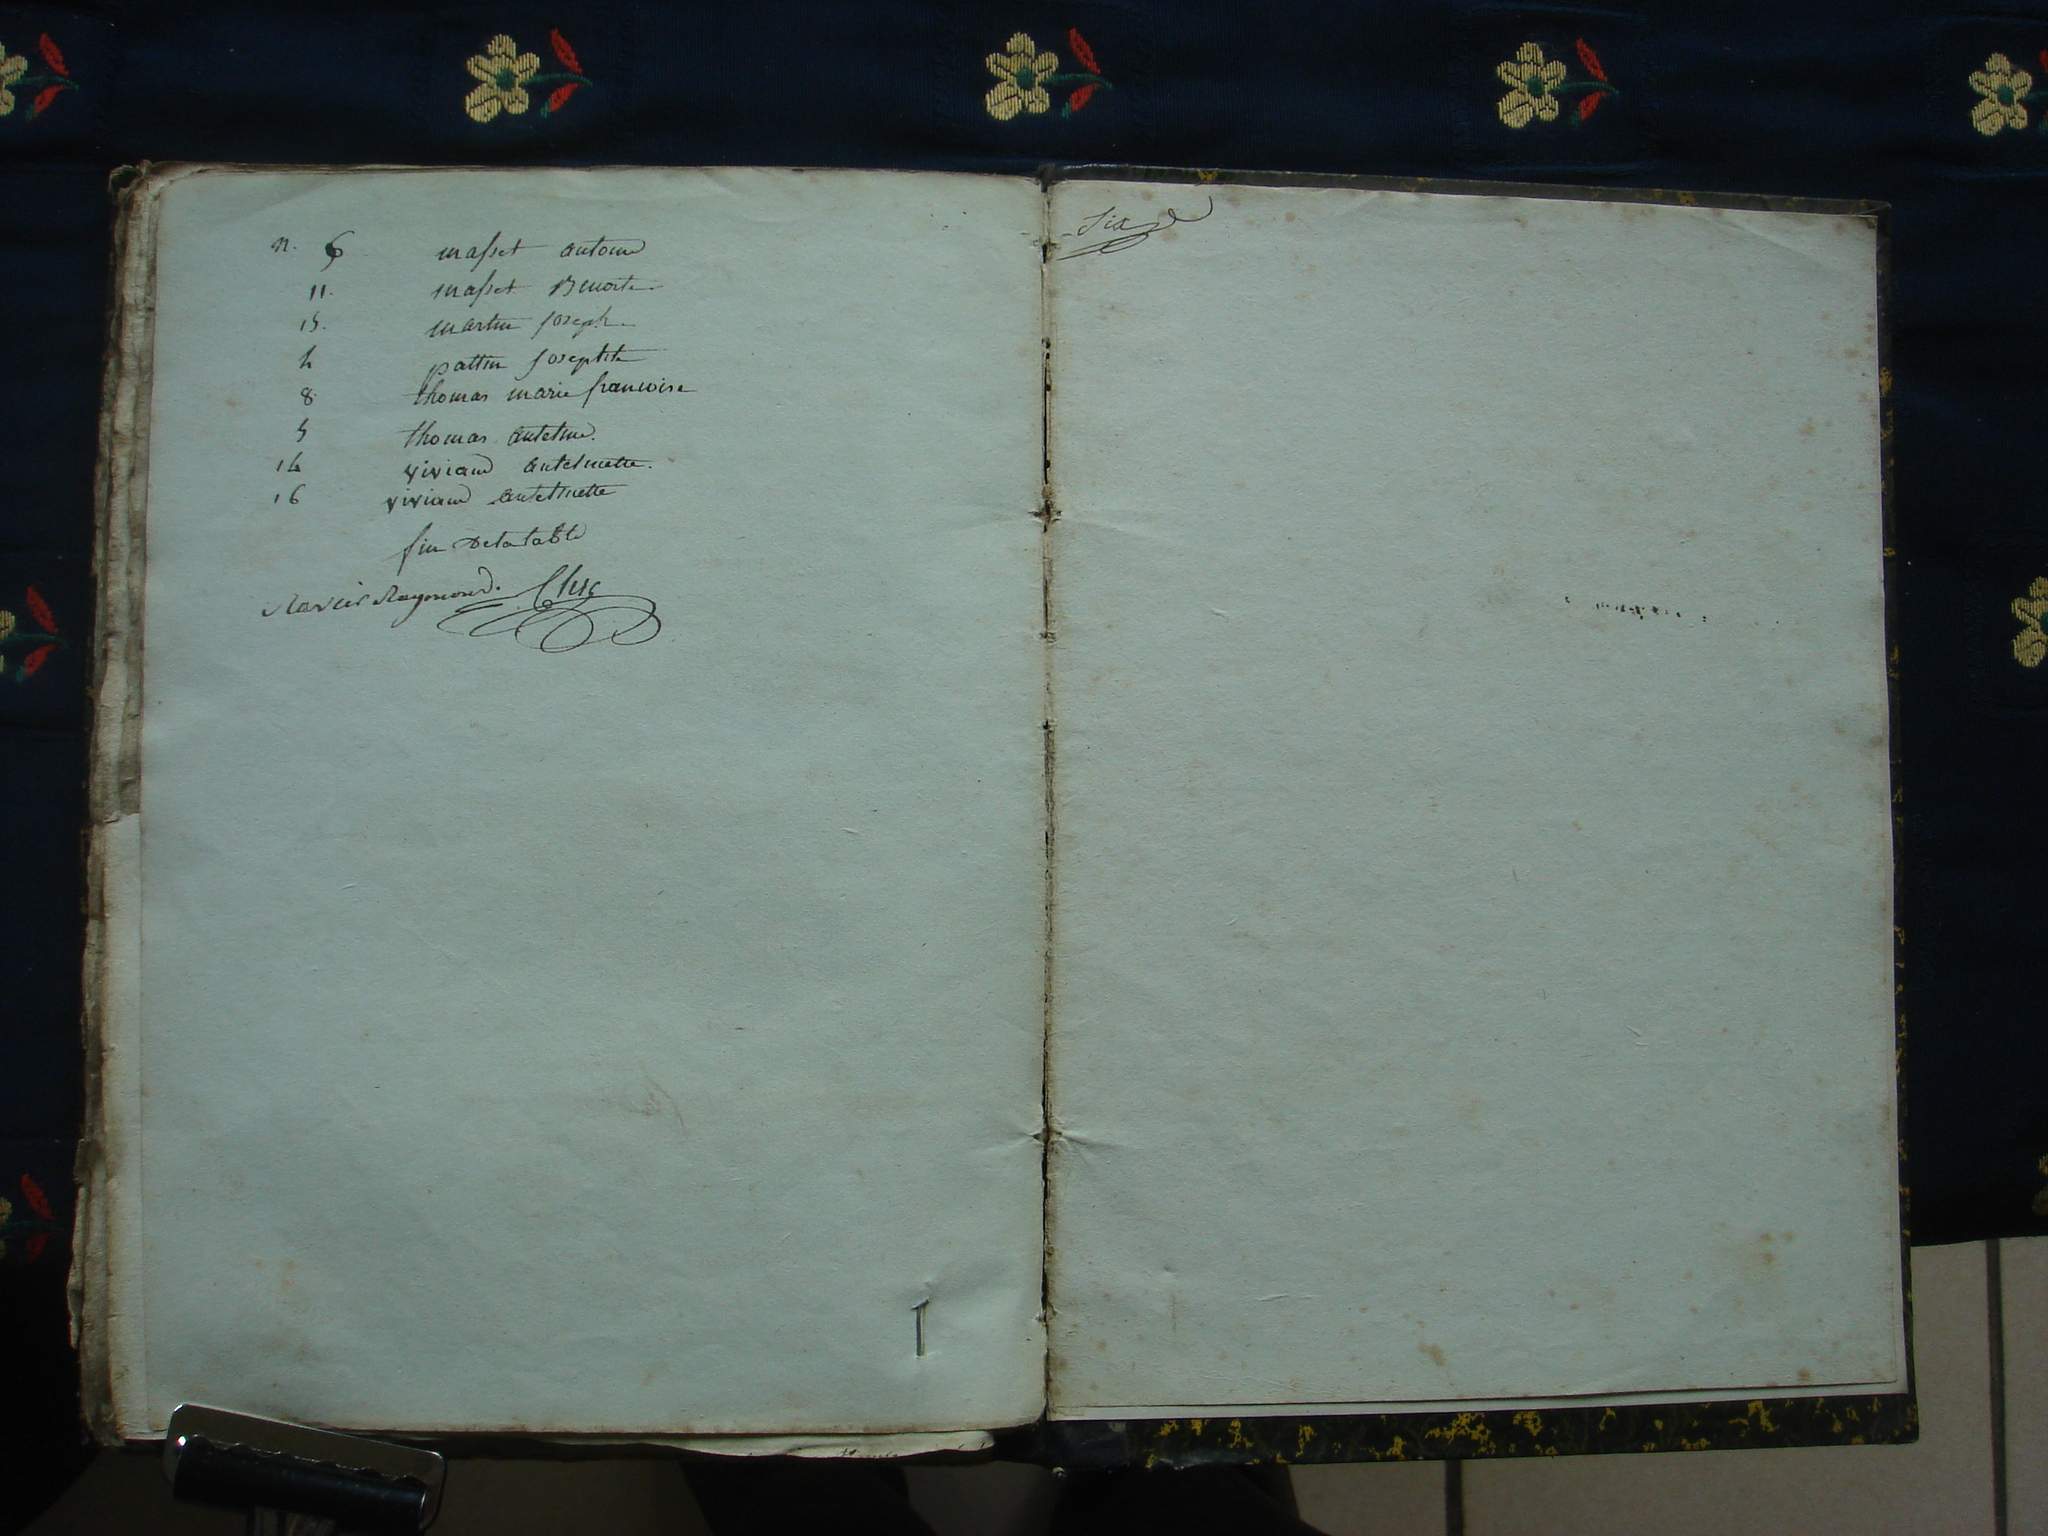 n. 6 masset antoine
11. masset Benoite
15. martin joseph
4 pattin josephte
8 thomas marie francoise
5 thomas antelme.
14 viviand antelmette.
16 viviand antelmette
fin De la table
Xavier Raymond. Clerc
Six